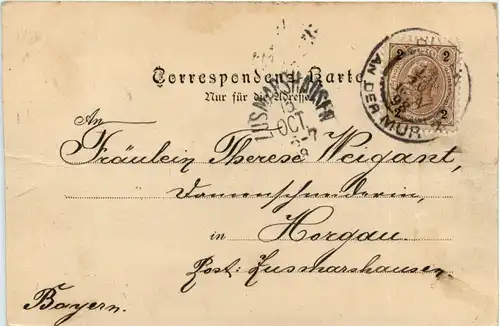 Correspondenz-Karte
Nur für die Adresse
ZUSMARSHAUSEN
OCT.
2
2
2
AN DER MUR
An
Fräulein Therese Weigant,
Damenschneiderin,
in Horgau.
Post: Zusmarshausen
Bayern.